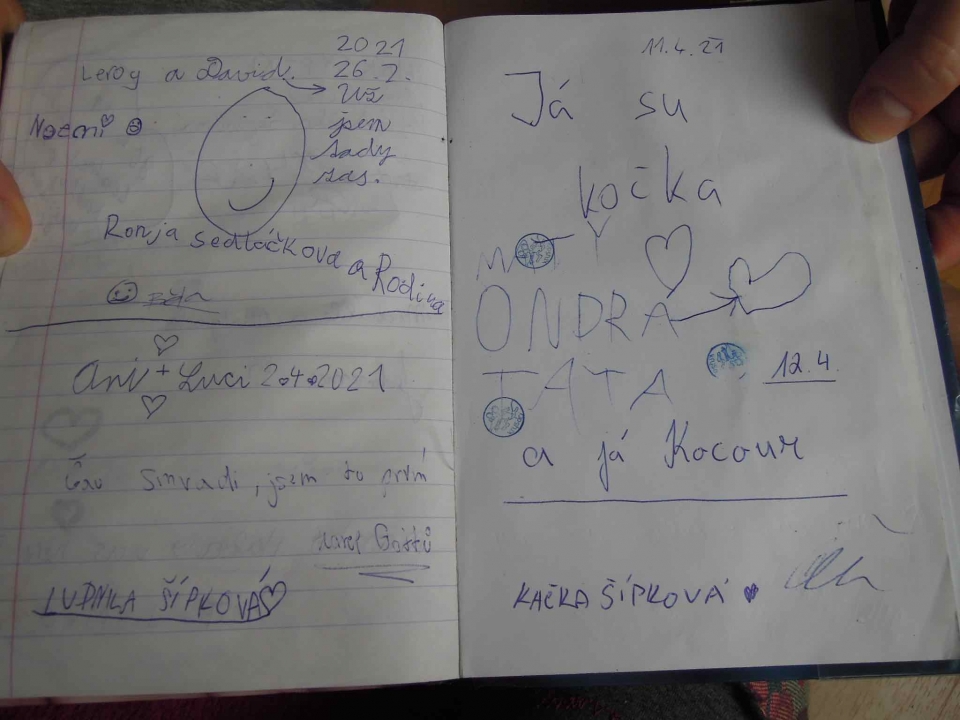 2021
26.7.
Leroy a David.
Už
jsem
tady
zas.
Noemi
Ronja Sedláčková a Rodina
Ani + Luci 2.4.2021
jsem tu prvn
LUDMILA ŠÍPKOVÁ
11.4.21
Já su
kočka
MATY
ONDRA
TÁTA
12.4.
a já Kocour
KAČKA ŠÍPKOVÁ